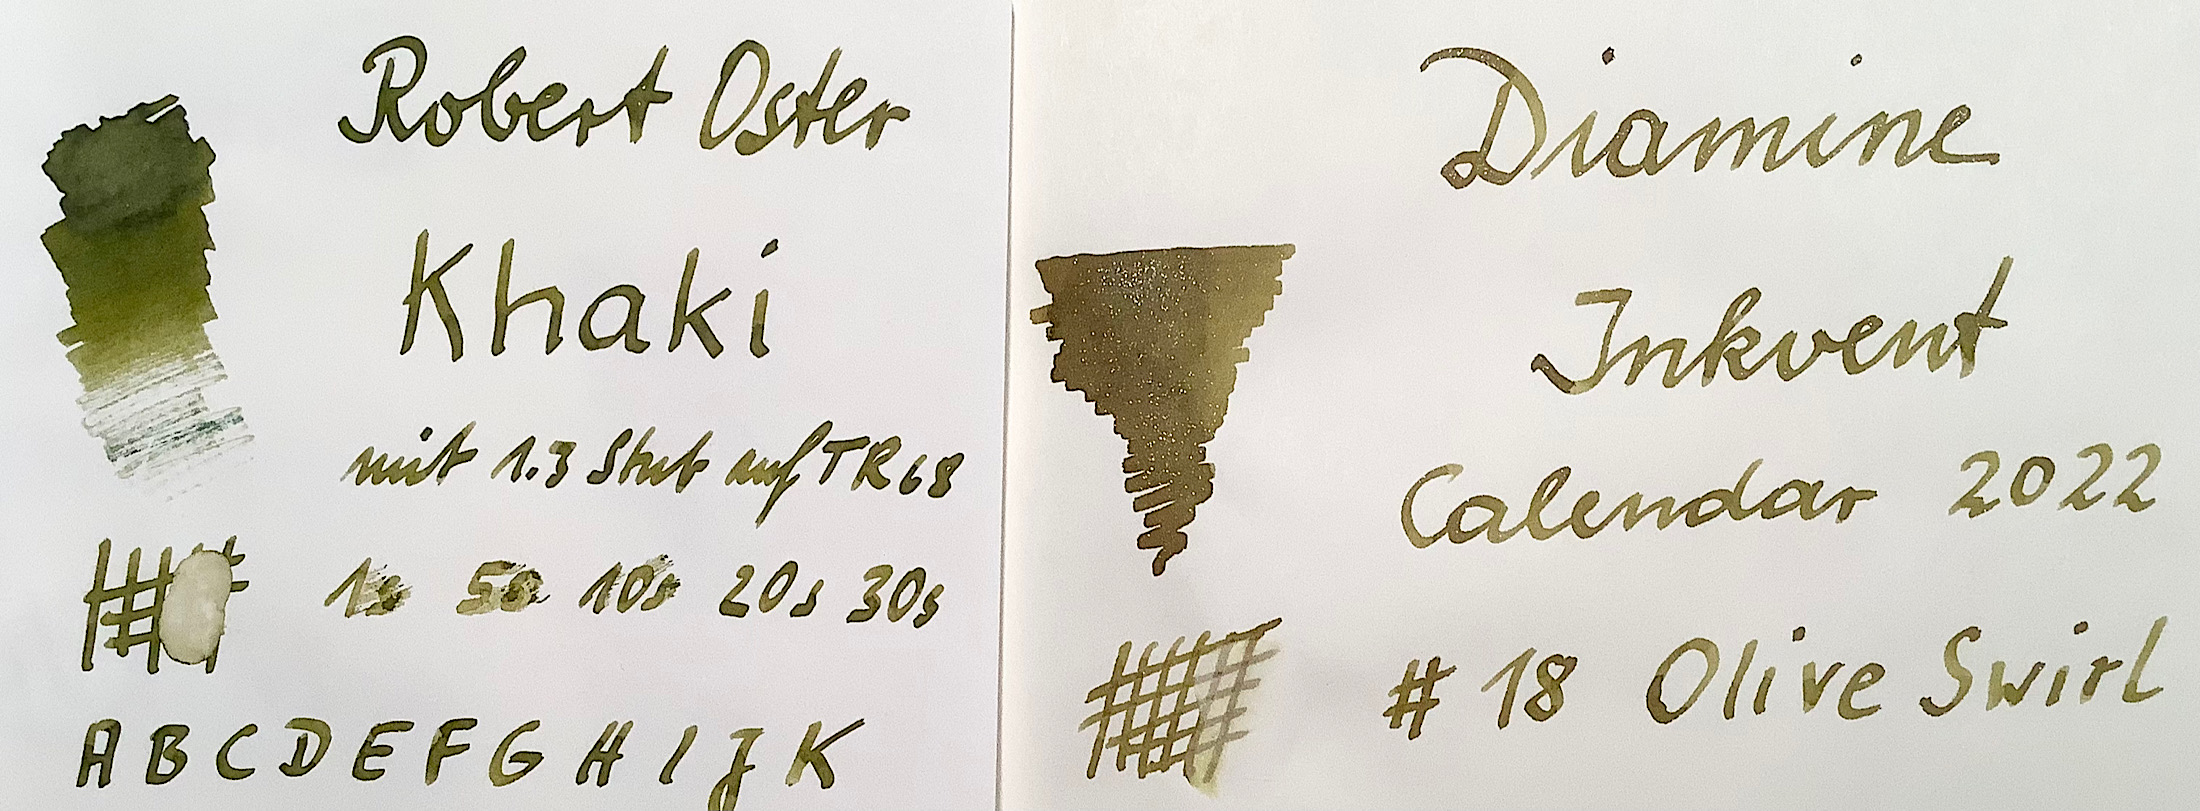 Robert Oster
Khaki
mit 1.3 Stub auf TR68
1s 5s 10s 20s 30s
A B C D E F G H I J K
Diamine
Inkvent
Calendar 2022
# 18 Olive Swirl